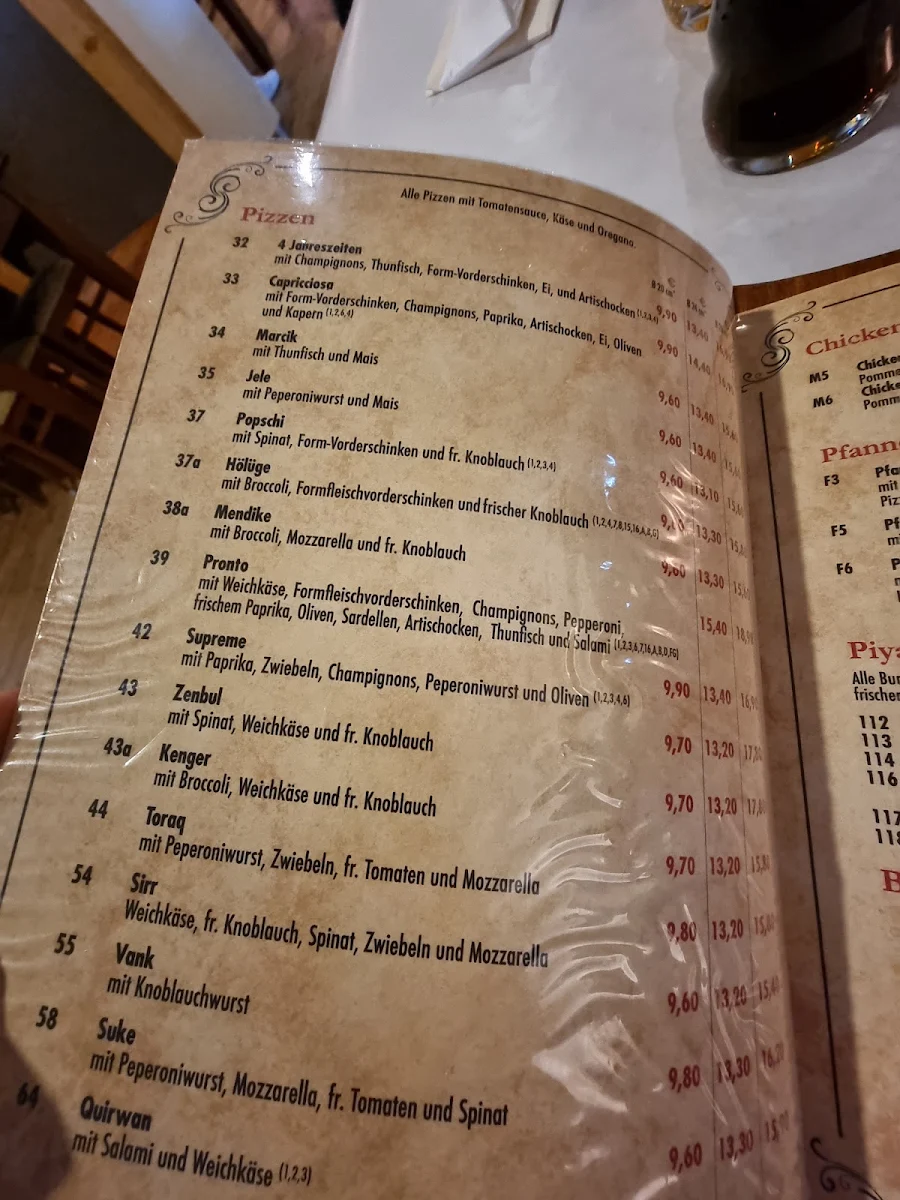 Alle Pizzen mit Tomatensauce, Käse und Oregano.
Pizzen
32 4 Jahreszeiten
mit Champignons, Thunfisch, Form-Vorderschinken, Ei, und Artischocken (1,2,3,4) 9,90 13,40
33 Capricciosa
mit Form-Vorderschinken, Champignons, Paprika, Artischocken, Ei, Oliven 9,90 14,40
und Kapern (1,2,6,4)
34 Marcik
mit Thunfisch und Mais 9,60 13,40
35 Jele
mit Peperoniwurst und Mais 9,60 13,40
37 Popschi
mit Spinat, Form-Vorderschinken und fr. Knoblauch (1,2,3,4) 9,60 13,10
37a Hölüge
mit Broccoli, Formfleischvorderschinken und frischer Knoblauch 13,30
38a Mendike
mit Broccoli, Mozzarella und fr. Knoblauch 9,60 13,30
39 Pronto
mit Weichkäse, Formfleischvorderschinken, Champignons, Pepperoni, 15,40
frischem Paprika, Oliven, Sardellen, Artischocken, Thunfisch und Salami
42 Supreme
mit Paprika, Zwiebeln, Champignons, Peperoniwurst und Oliven (1,2,3,4,6) 9,90 13,40
43 Zenbul
mit Spinat, Weichkäse und fr. Knoblauch 9,70 13,20
43a Kenger
mit Broccoli, Weichkäse und fr. Knoblauch 9,70 13,20
44 Toraq
mit Peperoniwurst, Zwiebeln, fr. Tomaten und Mozzarella 9,70 13,20
54 Sirr
Weichkäse, fr. Knoblauch, Spinat, Zwiebeln und Mozzarella 9,80 13,20
55 Vank
mit Knoblauchwurst 9,60 13,20
58 Suke
mit Peperoniwurst, Mozzarella, fr. Tomaten und Spinat 9,80 13,30
64 Quirwan
mit Salami und Weichkäse (1,2,3) 9,60 13,30
Chicken
M5 Chicke
Pomme
M6 Chicke
Pomm
Pfann
F3 Pfa
mit
Piz
F5 Pf
m
F6 P
Piy
Alle Bur
frischer
112
113
114
116
117
118
B